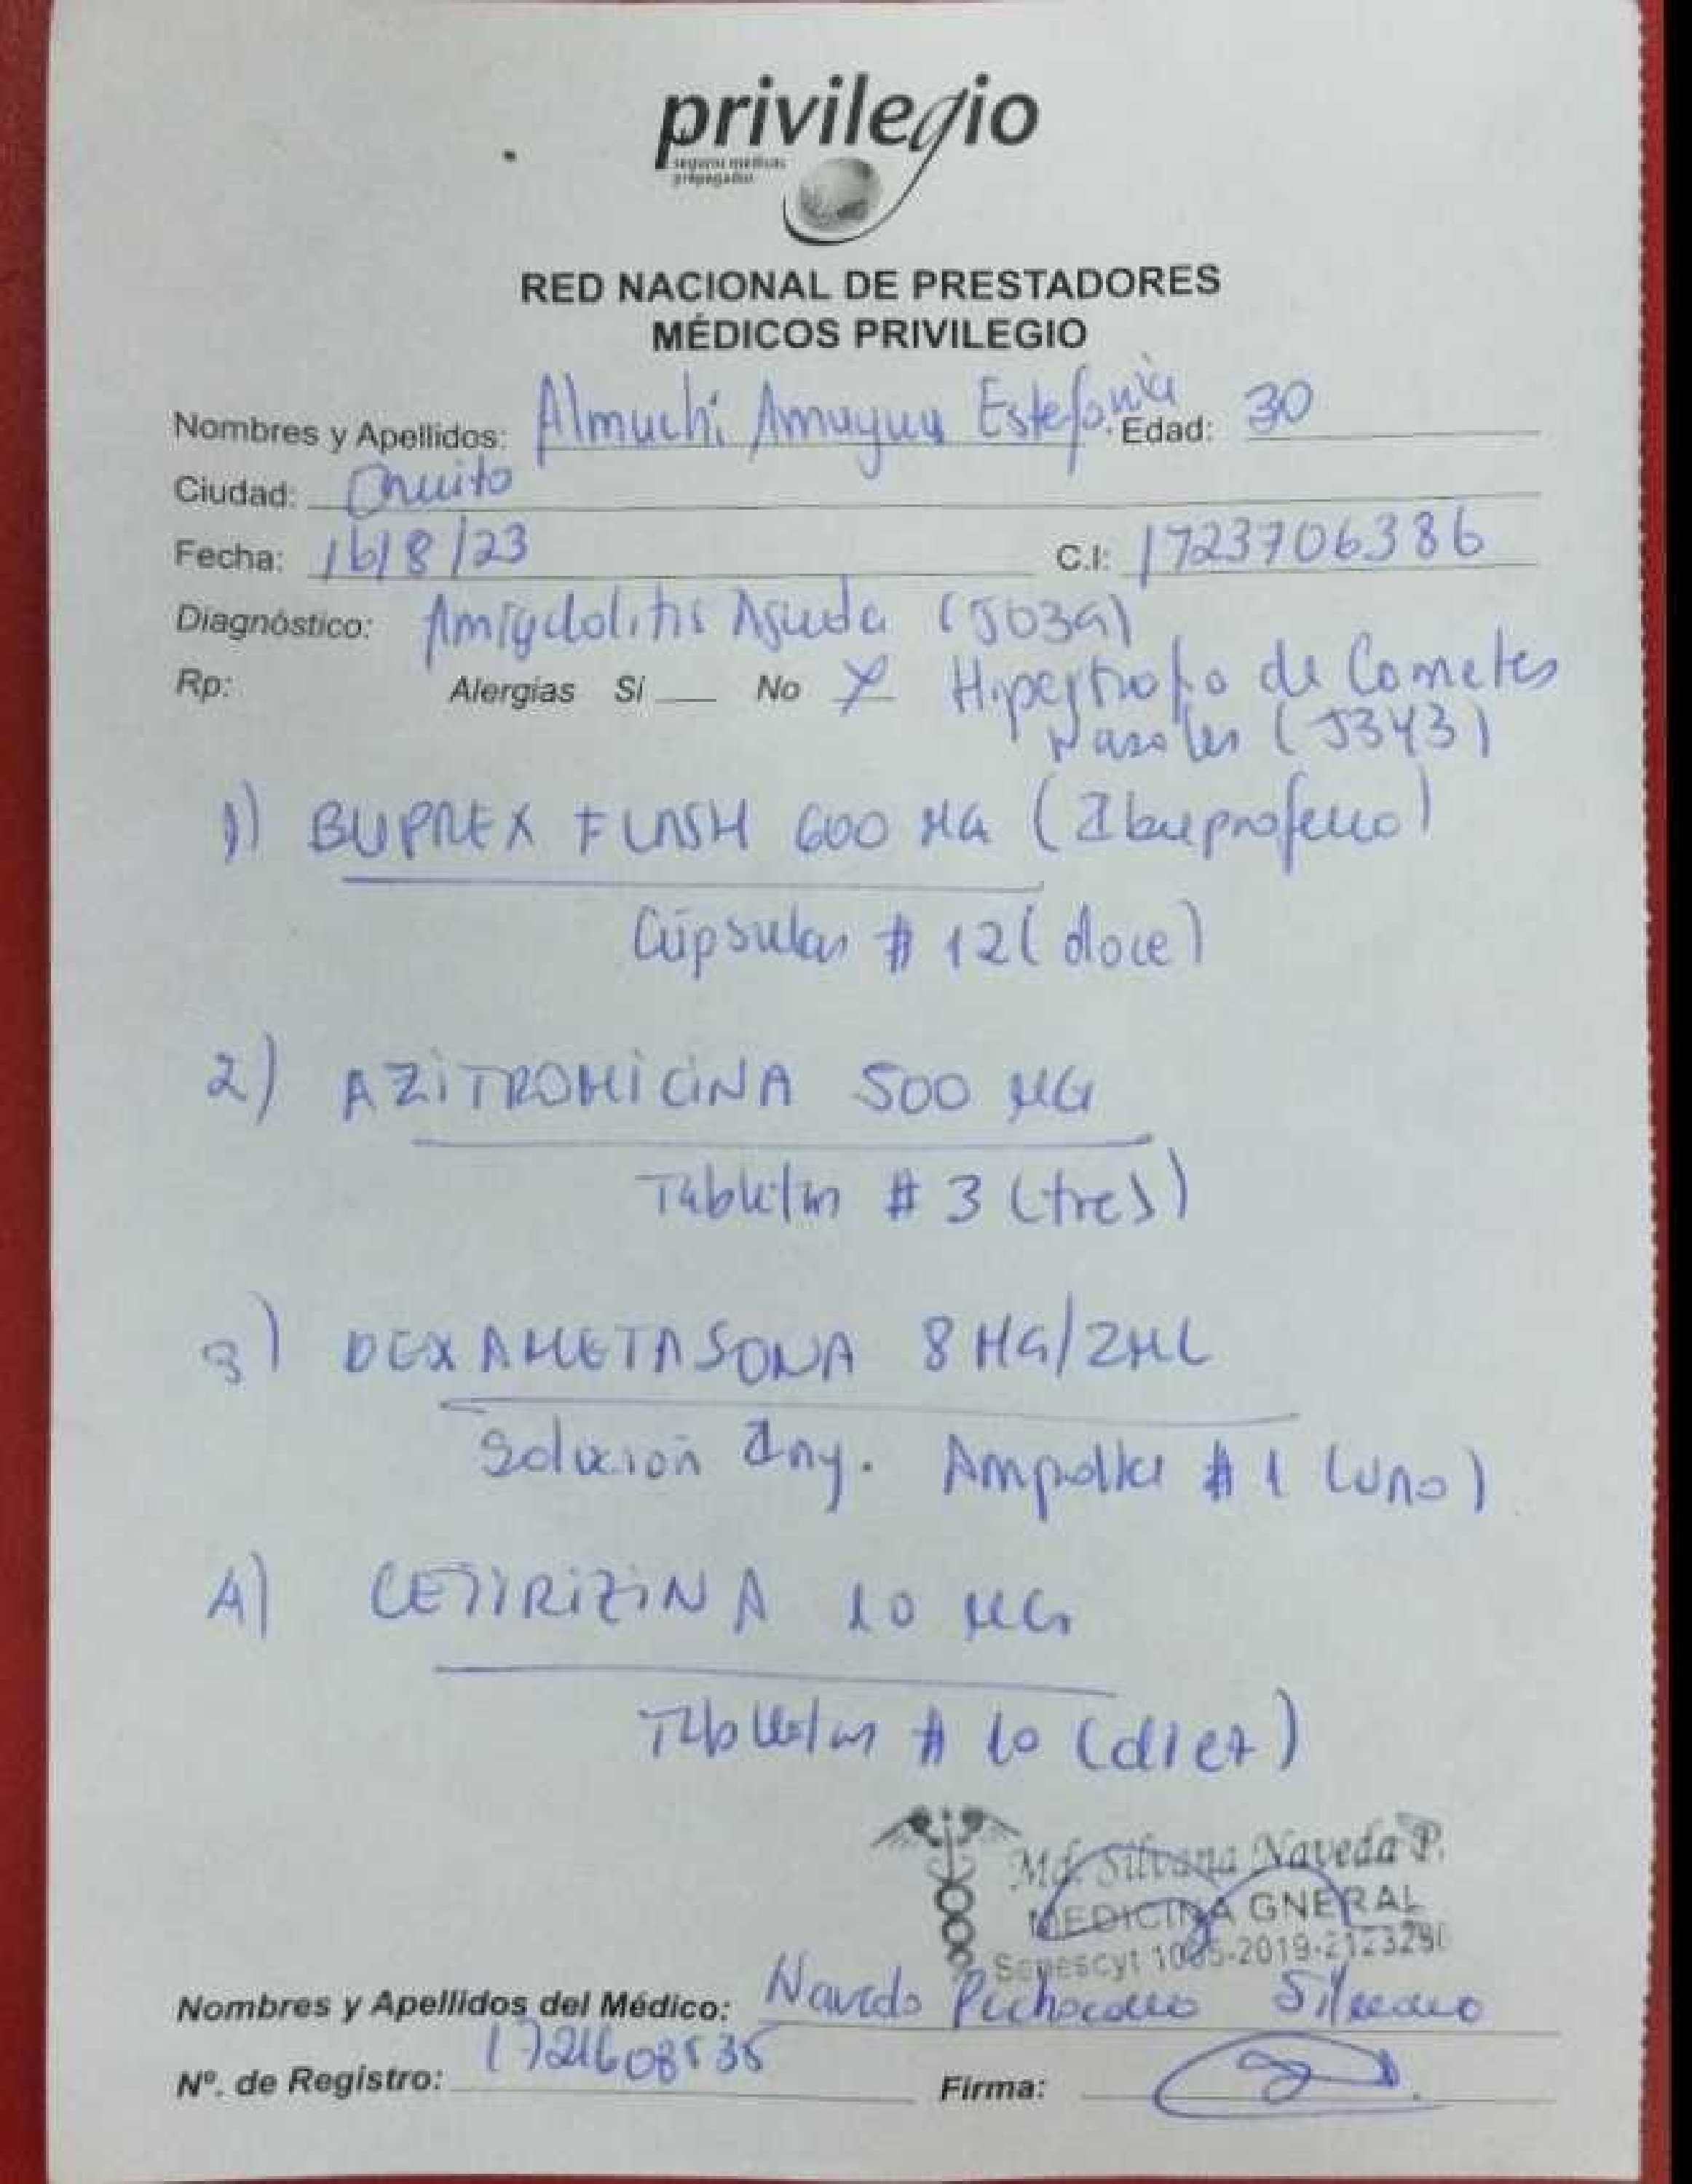 privilegio
seguros médicos
prepagados
RED NACIONAL DE PRESTADORES
MÉDICOS PRIVILEGIO
Nombres y Apellidos: Almuchi Amuguy Estefania Edad: 30
Ciudad: Quito
Fecha: 16/8/23 C.I: 1723706386
Diagnóstico: Amigdalitis Aguda (J039)
Rp: Alergias Sí ___ No X Hipertrofia de Cornetes
Nasales (J343)
1) BUPREX FLASH 600 MG (Ibuprofeno)
Cápsulas # 12 (doce)
2) AZITROMICINA 500 MG
Tabletas # 3 (tres)
3) DEXAMETASONA 8 MG/2ML
Solución Iny. Ampolla # 1 (uno)
4) CETIRIZINA 10 MG
Tabletas # 10 (diez)
Md. Silvana Naveda P.
MEDICINA GNERAL
Senescyt 1005-2019-
Nombres y Apellidos del Médico: Naveda Silvana
Nº. de Registro:
Firma: